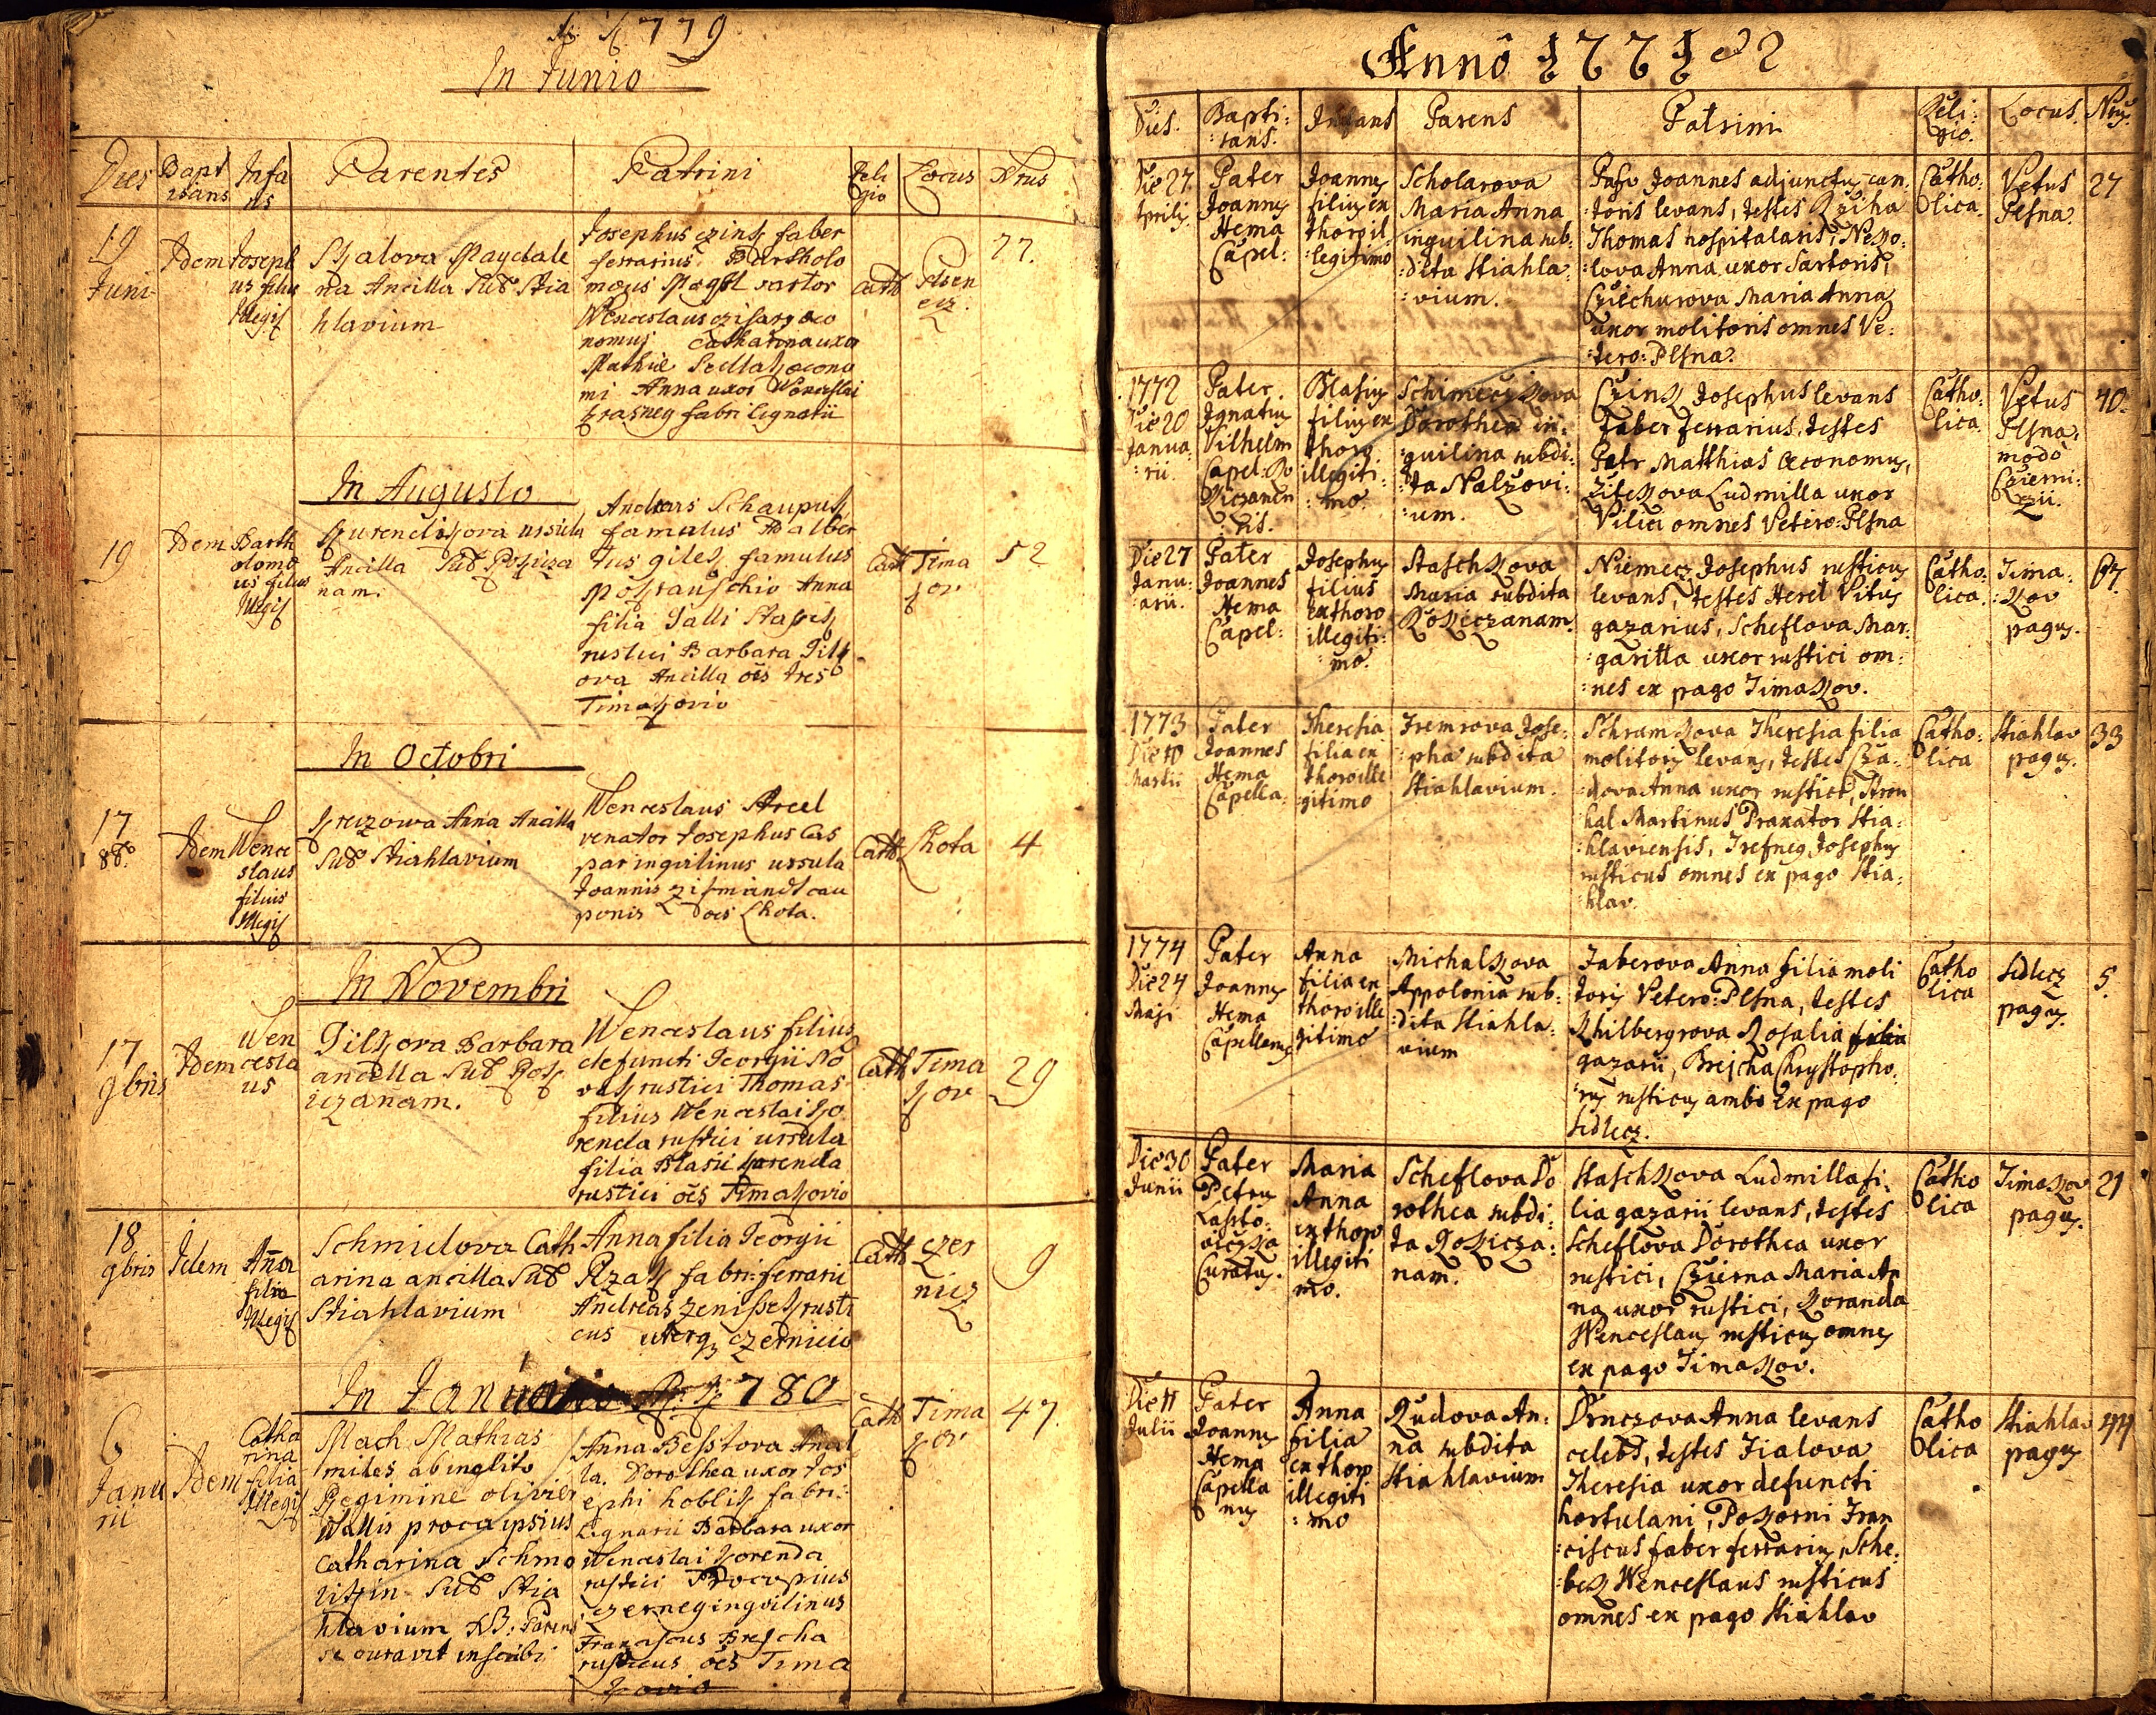 779
In Junio
Dies
Bapt
izans
Infa
ns
Parentes
Patrini
Reli
gio
Locus
Nrus
19
Juni
Idem
Joseph
us filius
Illegit
Skalova Magdale
na Ancilla Sub Stia
hlavium
Josephus czink faber
ferrarius Bartholo
mæus
Wenceslaus czisarz oeco
nomus Catharina uxor
Mathiæ Sedlak oecono
mi Anna uxor Wenceslai
Krasney fabri lignarii
Cath
Pilsen
ecz
77.
In Augusto
19
Idem
Barth
olomæ
us filius
Illegit
Kurendikova ursula
Ancilla Sub Rokicza
nam.
Andreas Schaupek
famulus Adalber
tus gilek famulus
Anna
filia Galli
rustici Barbara Gilk
ova Ancilla oes tres
Timakovio
Cath
Tima
kov
52
In Octobri
17
8b
Idem
Wence
slaus
filius
Illegit
Kreizowa Anna Ancilla
Sub Stiahlavium
Wenceslaus Streel
venator Josephus Cas
par inquilinus ursula
Joannis zikmundt cau
ponis oes Lhota.
Cath
Lhota
4
In Novembri
17
9bris
Idem
Wen
cesla
us
Gilkova Barbara
ancilla Sub Rok
iczanam.
Wenceslaus filius
defuncti Georgii No
vak rustici Thomas
filius Wenceslai Ko
renda rustici ursula
filia Blasii korenda
rustici oes Timakovio
Cath
Tima
kov
29
18
9bris
Idem
Anna
filia
Illegit
Schmidova Cath
arina ancilla Sub
Stiahlavium
Anna filia Georgii
Rzak fabri ferrarii
Andreas Zenissek rusti
cus uterq czernicio
Cath
czer
nicz
9
In Januario 780
6
Janu
rii
Idem
Catha
rina
filia
Illegit
Mach Mathias
miles ab inglito
Regimine olivier
Wallis procaipsius
Catharina Schmo
Sub Stia
hlavium NB: Parens
se curavit inscribi
Anna Besstova Ancil
la. Dorothea uxor Jos
ephi koblik fabri
Lignarii Barbara uxor
Wenceslai korenda
rustici Procopius
czerneg inqvilinus
Franciscus Brejcha
rusticus oes Tima
kovio
Cath
Tima
kov
47.
Anno 1771 et 2
Dies.
Bapti:
:zans.
Infans
Parens
Patrini
Reli:
gio.
Locus.
Nrus.
Die 27
Aprilis
Pater
Joannes
Hema
Capel:
Joannes
filius ex
thoro il:
:legitimo
Scholarova
Maria Anna
inquilina sub:
:dita Stiahla:
:vium.
Joannes adjunctus can:
:toris levans, testes Rziha
Thomas hospitalaris,
Anna uxor Sartoris,
Cziechurova Maria Anna
uxor molitoris omnes Ve:
:tero:Plsna.
Catho:
lica.
Vetus
Plsna.
27
1772
Die 20
Janua:
:rii.
Pater
Ignatius
Vilhelm
Capel: Ro
kiczanen
:sis.
Blasius
filius ex
thoro
illegiti:
:mo.
Schimeczkova
Dorothea in:
:quilina subdi:
:ta Nalzovi:
:um.
Czink Josephus levans
Faber ferrarius, testes
Petr Matthias Oeconomus,
Zitkova Ludmilla uxor
Vilici omnes Vetero:Plsna
Catho:
lica.
Vetus
Plsna,
modo
Czerni:
czii.
40.
Die 27
Janu:
:arii.
Pater
Joannes
Hema
Capel:
Josephus
filius
ex thoro
illegiti:
:mo.
Staschkova
Maria subdita
Rokiczanam.
Niemecz Josephus rusticus
levans, testes Herel Vitus
gazarius, Scheflova Mar:
:garitta uxor rustici om:
:nes ex pago Timakov.
Catho:
lica.
Tima:
:kov
pagus.
67.
1773
Die 10
Martii
Pater
Joannes
Hema
Capella:
Theresia
filia ex
thoro ille
:gitimo
Tremrova Jose:
:pha subdita
Stiahlavium.
Schramkova Theresia filia
molitoris levans, testes Cza:
:dova Anna uxor rustici, Stron
hal Martinus Praxator Stia:
:hlaviensis, Trefneg Josephus
rusticus omnes ex pago Stia:
:hlav.
Catho:
lica
Stiahlav
pagus.
33
1774
Die 24
Maji
Pater
Joannes
Hema
Capellanus
Anna
filia ex
thoro ille
gitimo
Michalkova
Appolonia sub:
:dita Stiahla:
vium
Faberova Anna filia moli
toris Vetero:Plsna, testes
Khilbergrova Rosalia filia
gazarii, Brejcha Chrystopho:
:rus rusticus ambo Ex pago
Sedlecz.
Catho
lica
Sedlecz
pagus.
5.
Die 30
Junii
Pater
Petrus
Lasto:
viczka
Curatus.
Maria
Anna
ex thoro
illegiti
mo.
Scheflova Do
rothea subdi:
ta Rokicza:
nam.
Staschkova Ludmilla fi:
lia gazarii levans, testes
Scheflova Dorothea uxor
rustici, Czierna Maria An
na uxor rustici, Koranda
Wenceslaus rusticus omnes
ex pago Timakov.
Catho
lica
Timakov
pagus.
21
Die 11
Julii
Pater
Joannes
Hema
Capella
nus
Anna
filia
ex thoro
illegiti
:mo
Dudova An:
na subdita
Stiahlavium
Drnczova Anna levans
celebs, testes Fialova
Theresia uxor defuncti
hortulani, Pokorni Fran
:ciscus faber ferrarius, Sche:
:bek Wenceslaus rusticus
omnes ex pago Stiahlav
Catho
lica
Stiahlav
pagus
44